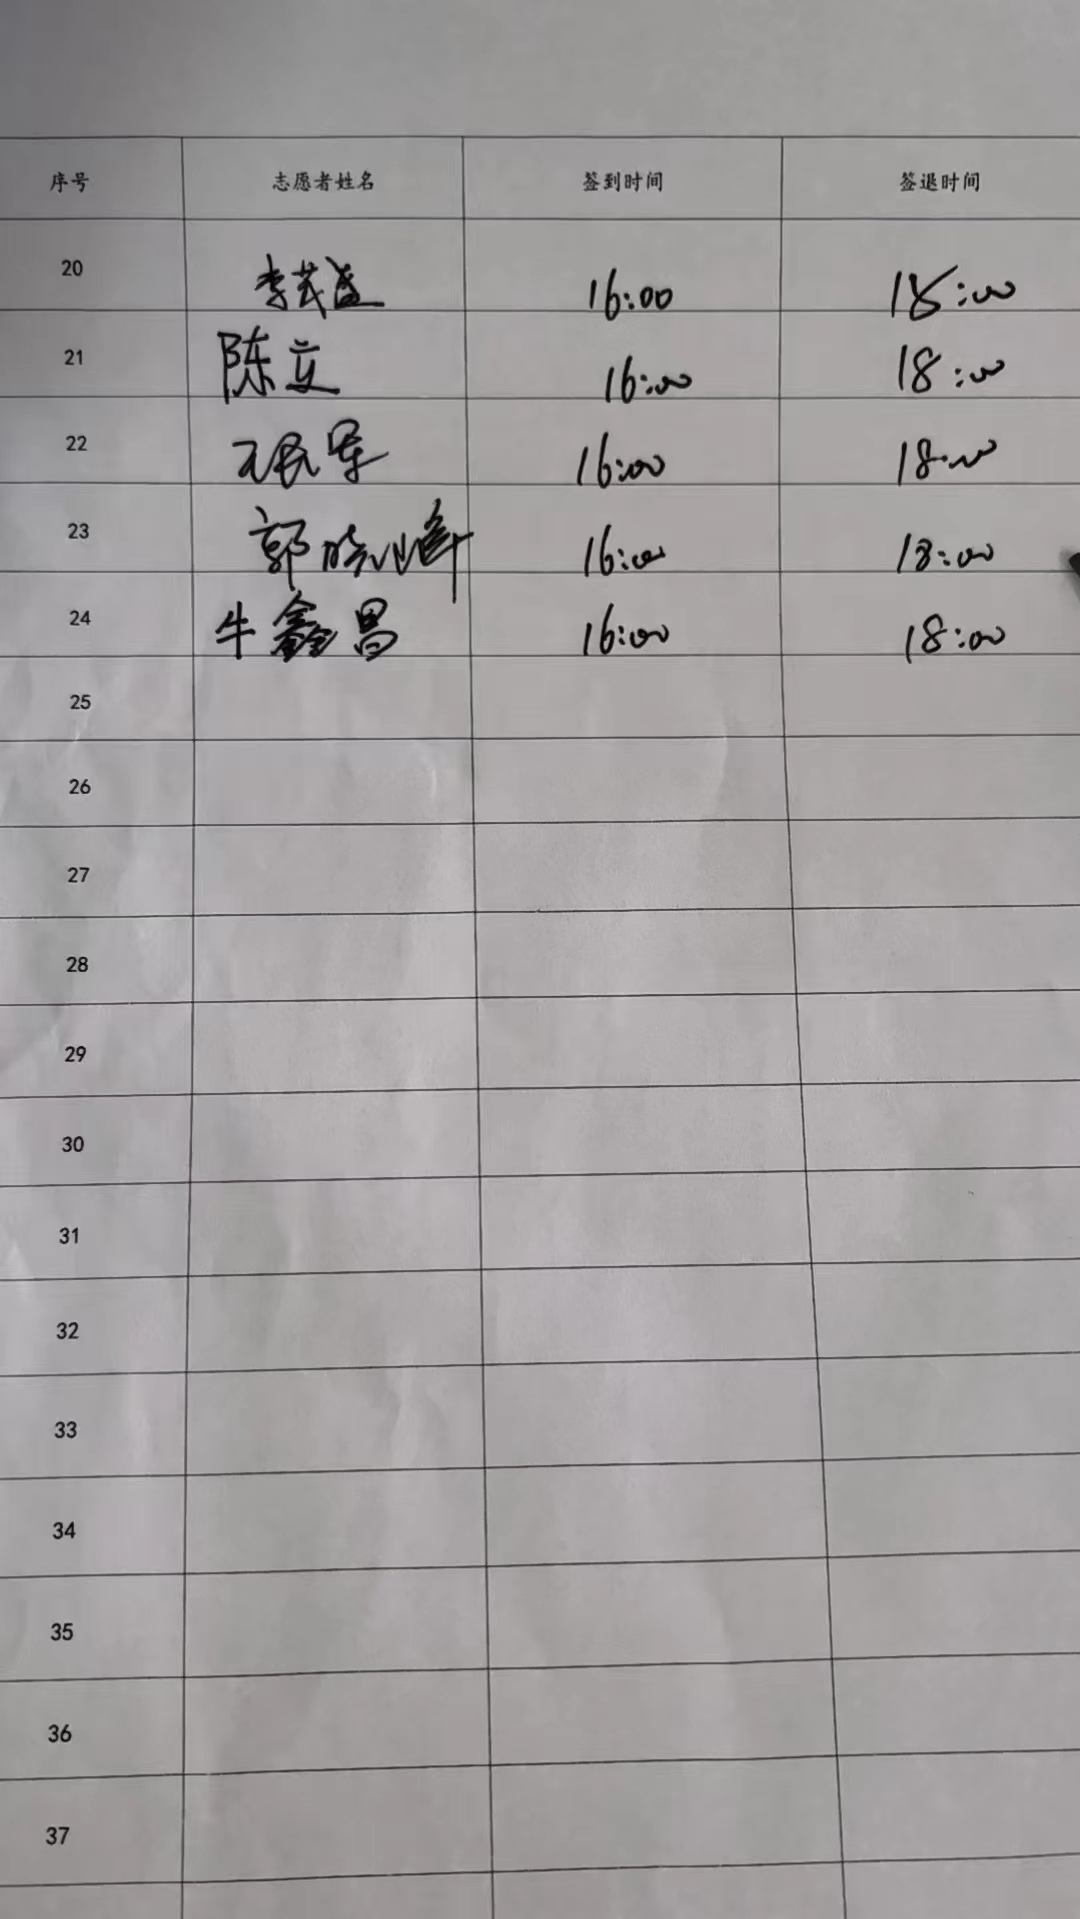 序号 志愿者姓名 签到时间 签退时间
20 李茂盛 16:00 18:00
21 陈立 16:00 18:00
22 王民军 16:00 18:00
23 郭晓峰 16:00 18:00
24 牛鑫昌 16:00 18:00
25
26
27
28
29
30
31
32
33
34
35
36
37